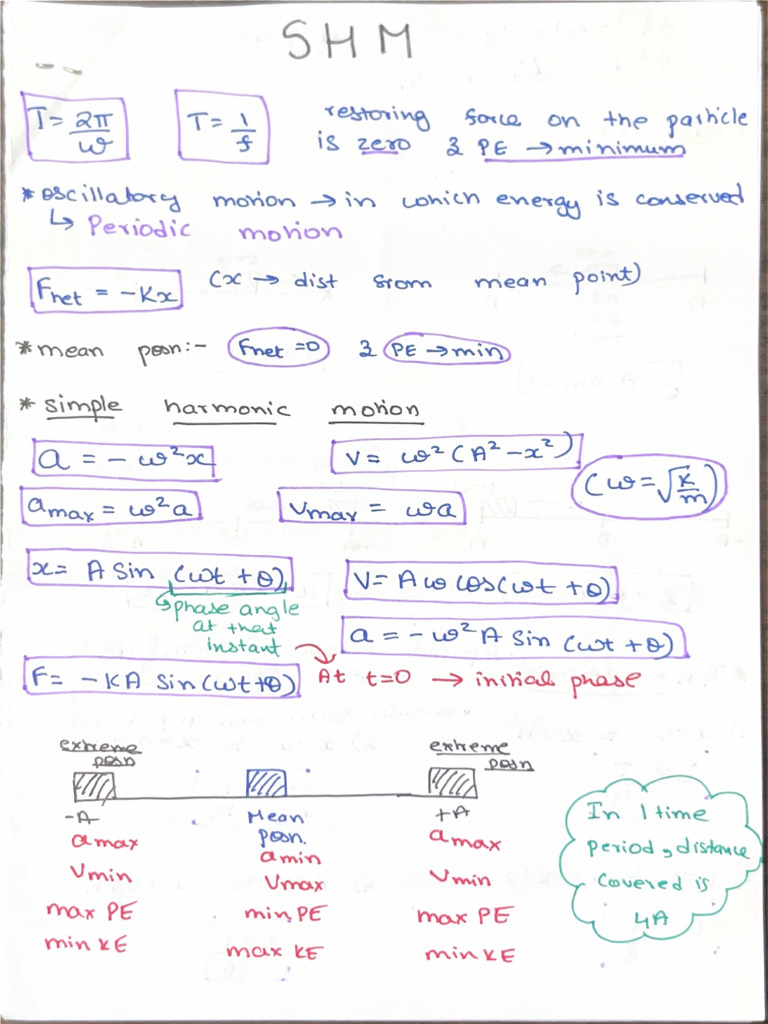 SHM
T = 2π/ω   T = 1/f   restoring force on the particle
is zero & PE → minimum
* oscillatory motion → in which energy is conserved
↳ Periodic motion
Fnet = -Kx   (x → dist from mean point)
* mean posn:- Fnet = 0 & PE → min
* simple harmonic motion
a = - ω²x   v = ω² (A² - x²)
(ω = √k/m)
amax = ω²a   vmax = ωa
x = A Sin (ωt + θ)   v = A ω cos(ωt + θ)
↳ phase angle
at that
instant
a = - ω² A Sin (ωt + θ)
F = - KA Sin (ωt + θ)   At t=0 → initial phase
extreme posn   extreme posn
-A   Mean posn.   +A
amax   amin   amax
Vmin   Vmax   Vmin
max PE   min PE   max PE
min KE   max KE   min KE
In 1 time
period, distance
covered is
4A